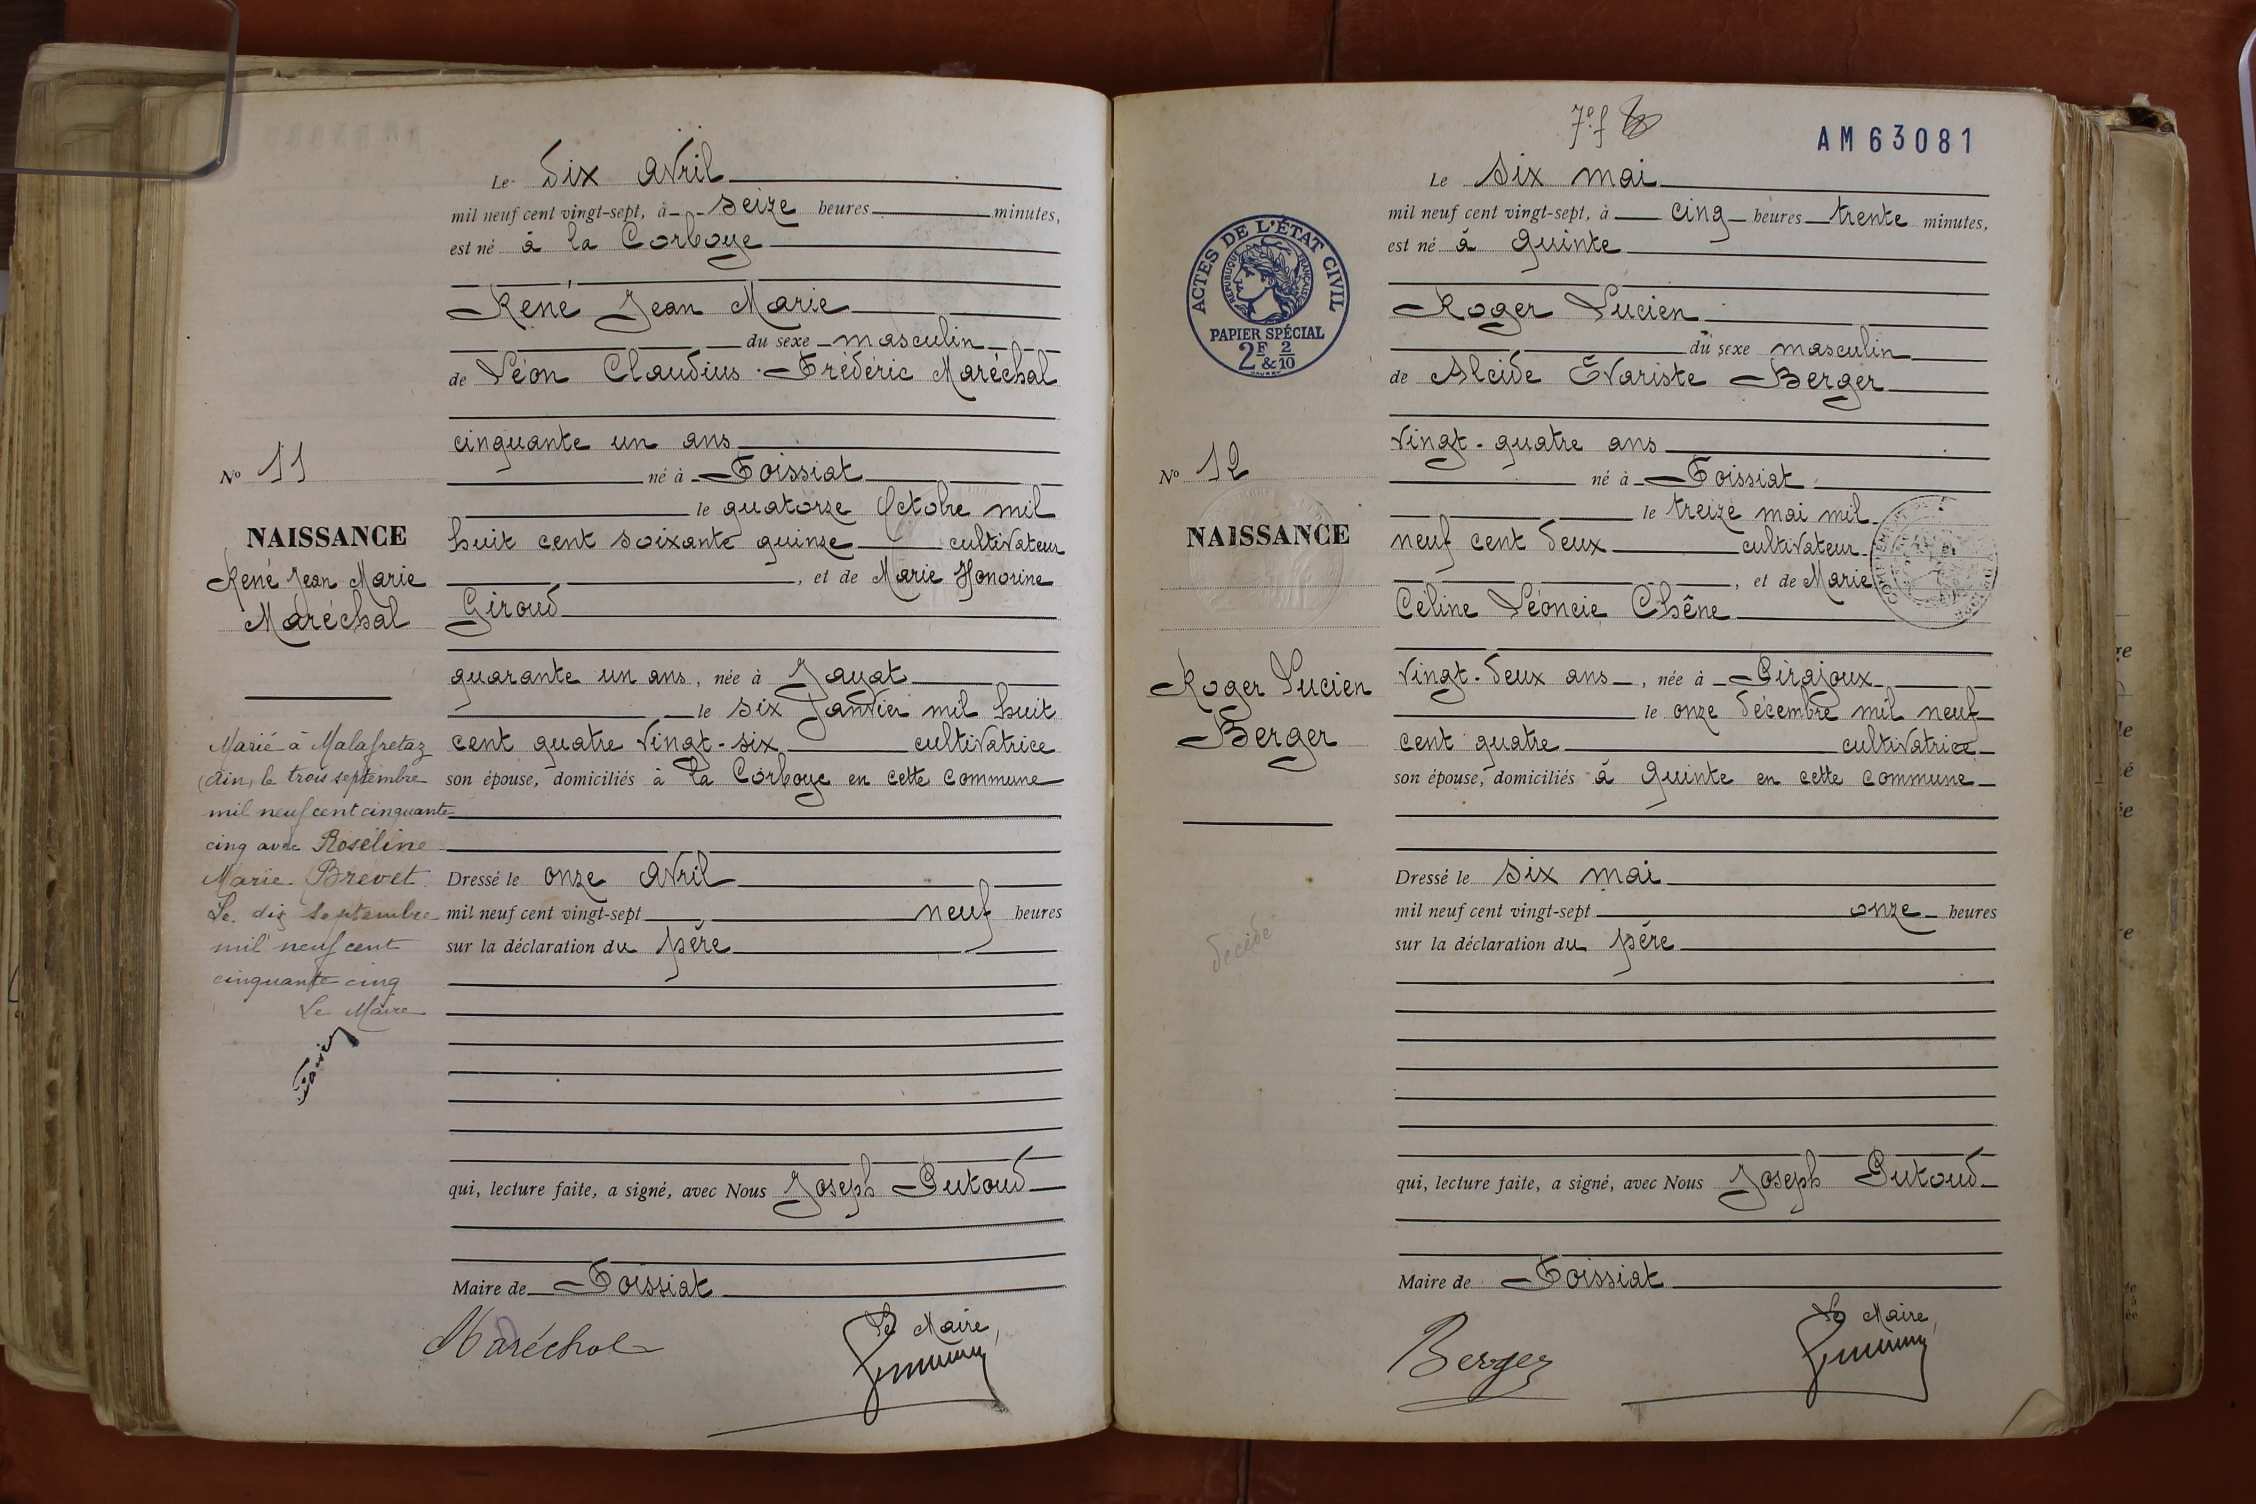 Le dix avril
mil neuf cent vingt-sept, à seize heures minutes,
est né à la Corboye
René Jean Marie
du sexe masculin
de Léon Claudius Frédéric Maréchal
cinquante un ans
né à Foissiat
le quatorze Octobre mil
huit cent soixante quinze cultivateur
, et de Marie Honorine
Giroud
quarante un ans, née à Jayat
le six Janvier mil huit
cent quatre vingt-six cultivatrice
son épouse, domiciliés à la Corboye en cette commune
Dressé le onze avril
mil neuf cent vingt-sept neuf heures
sur la déclaration du père
qui, lecture faite, a signé, avec Nous Joseph Putoud
Maire de Foissiat
Maréchal
Le Maire,
No 11
NAISSANCE
René Jean Marie
Maréchal
Marié à Malafretaz
(Ain) le trois septembre
mil neuf cent cinquante
cinq avec Roseline
Marie Brevet
Le dix septembre
mil neuf cent
cinquante cinq
Le Maire
7e f
AM 63081
Le six mai
mil neuf cent vingt-sept, à cinq heures trente minutes,
est né à Quinte
Roger Lucien
du sexe masculin
de Alcide Evariste Berger
vingt-quatre ans
né à Foissiat
le treize mai mil
neuf cent deux cultivateur
, et de Marie
Céline Léoncie Chêne
vingt-deux ans, née à Pirajoux
le onze décembre mil neuf
cent quatre cultivatrice
son épouse, domiciliés à Quinte en cette commune
Dressé le six mai
mil neuf cent vingt-sept onze heures
sur la déclaration du père
qui, lecture faite, a signé, avec Nous Joseph Putoud
Maire de Foissiat
Berger
Le Maire,
ACTES DE L'ÉTAT CIVIL
RÉPUBLIQUE FRANÇAISE
PAPIER SPÉCIAL
2F & 2/10
No 12
NAISSANCE
Roger Lucien
Berger
décédé